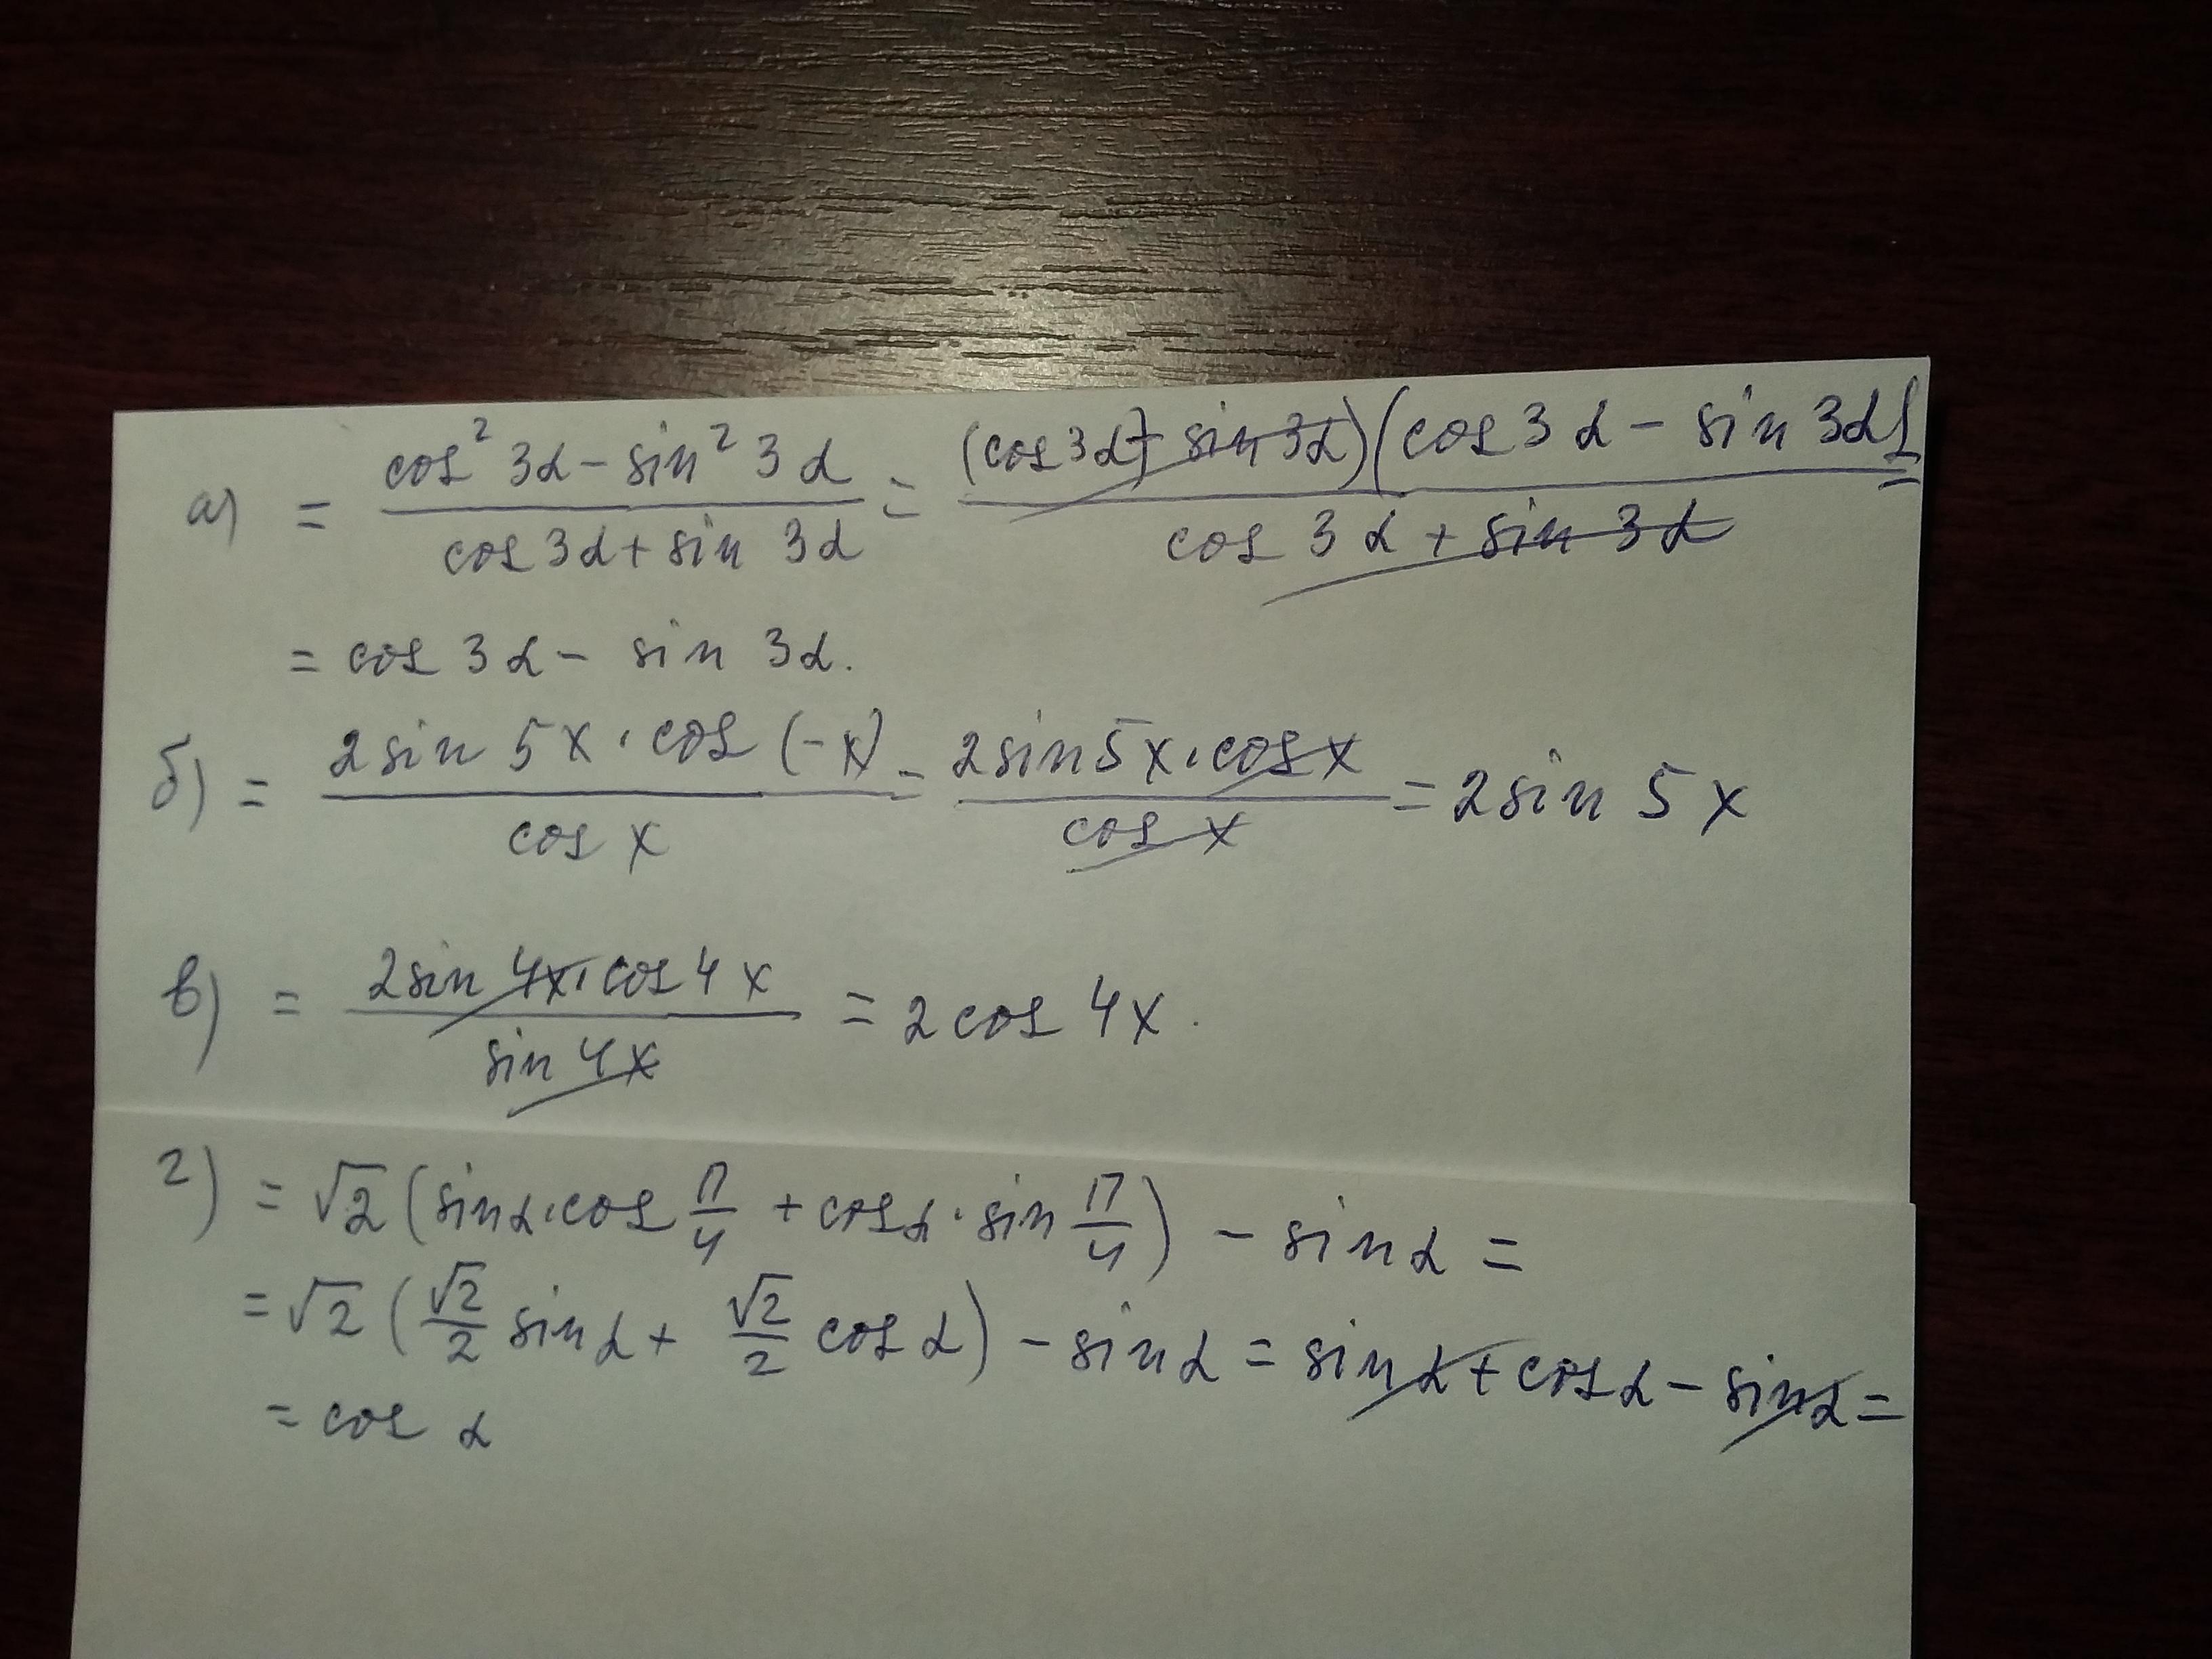 а) = (cos² 3α - sin² 3α)/(cos 3α + sin 3α) = ((cos 3α + sin 3α)(cos 3α - sin 3α))/(cos 3α + sin 3α) =
= cos 3α - sin 3α.
б) = (2 sin 5x · cos (-x))/(cos x) = (2 sin 5x · cos x)/(cos x) = 2 sin 5x
в) = (2 sin 4x · cos 4x)/(sin 4x) = 2 cos 4x.
г) = √2 (sin α · cos π/4 + cos α · sin π/4) - sin α =
= √2 (√2/2 sin α + √2/2 cos α) - sin α = sin α + cos α - sin α =
= cos α